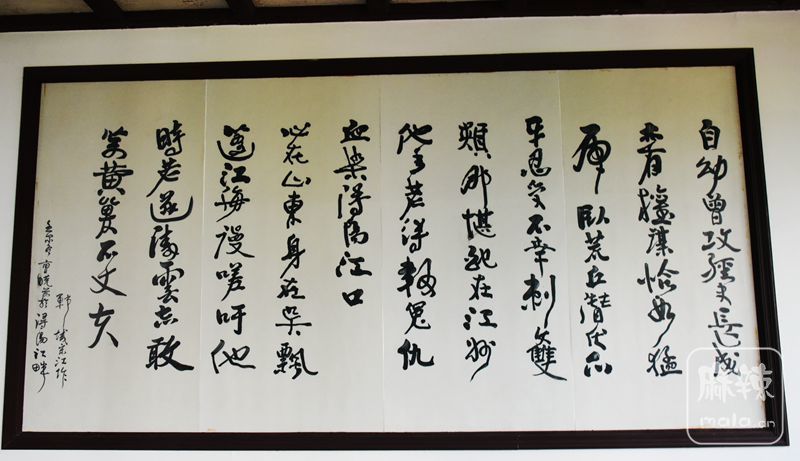 自幼曾攻經史長成
亦有權謀恰如猛
虎臥荒丘潛伏爪
牙忍受不幸刺雙
頰那堪配在江州
他年若得報冤仇
血染潯陽江口
心在山東身在吳飄
蓬江海謾嗟吁他
時若遂凌雲志敢
笑黃巢不丈夫
宋江作
於潯陽江畔
麻辣
mala.cn